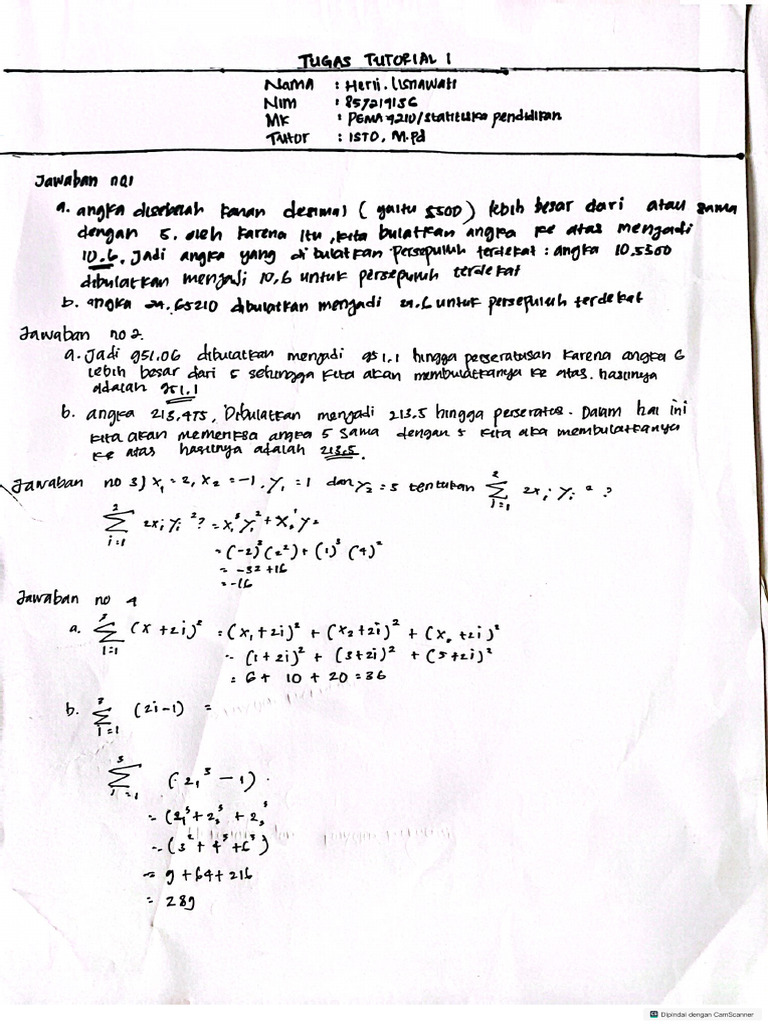 TUGAS TUTORIAL 1
Nama : Herii. Lisnawati
Nim : 857219156
MK : PEMA 4210/statistika pendidikan
Tutor : ISTO, M.Pd
Jawaban no1
a. angka disebelah kanan desimal ( yaitu 5500) lebih besar dari atau sama
dengan 5. oleh karena itu, kita bulatkan angka ke atas menjadi
10.6. Jadi angka yang di bulatkan persepuluh terdekat : angka 10.5500
dibulatkan menjadi 10,6 untuk persepuluh terdekat
b. angka 21.65210 dibulatkan menjadi 21.6 untuk persepuluh terdekat
Jawaban no 2.
a. Jadi 951.06 dibulatkan menjadi 951.1 hingga perseratusan karena angka 6
lebih besar dari 5 sehingga kita akan membulatkanya ke atas. hasilnya
adalah 951.1
b. angka 213,475, Dibulatkan menjadi 213.5 hingga perseratos. Dalam hal ini
kita akan memeriksa angka 5 sama dengan 5 kita aka membulatkanya
ke atas hasilnya adalah 213.5.
Jawaban no 3) x₁ = 2, x₂ = -1, y₁ = 1 dan y₂ = 5 tentukan
= (-2)³ (2²) + (1)³ (4)²
= -32 + 16
= -16
Jawaban no 4
a. Σ (x + 2i)² = (x₁ + 2i)² + (x₂ + 2i)² + (x + 2i)²
= (1 + 2i)² + (3 + 2i)² + (5 + 2i)²
= 6 + 10 + 20 = 36
b. Σ (2i - 1) =
= (3² + 4³ + 6³)
= 9 + 64 + 216
= 289
Dipindai dengan CamScanner